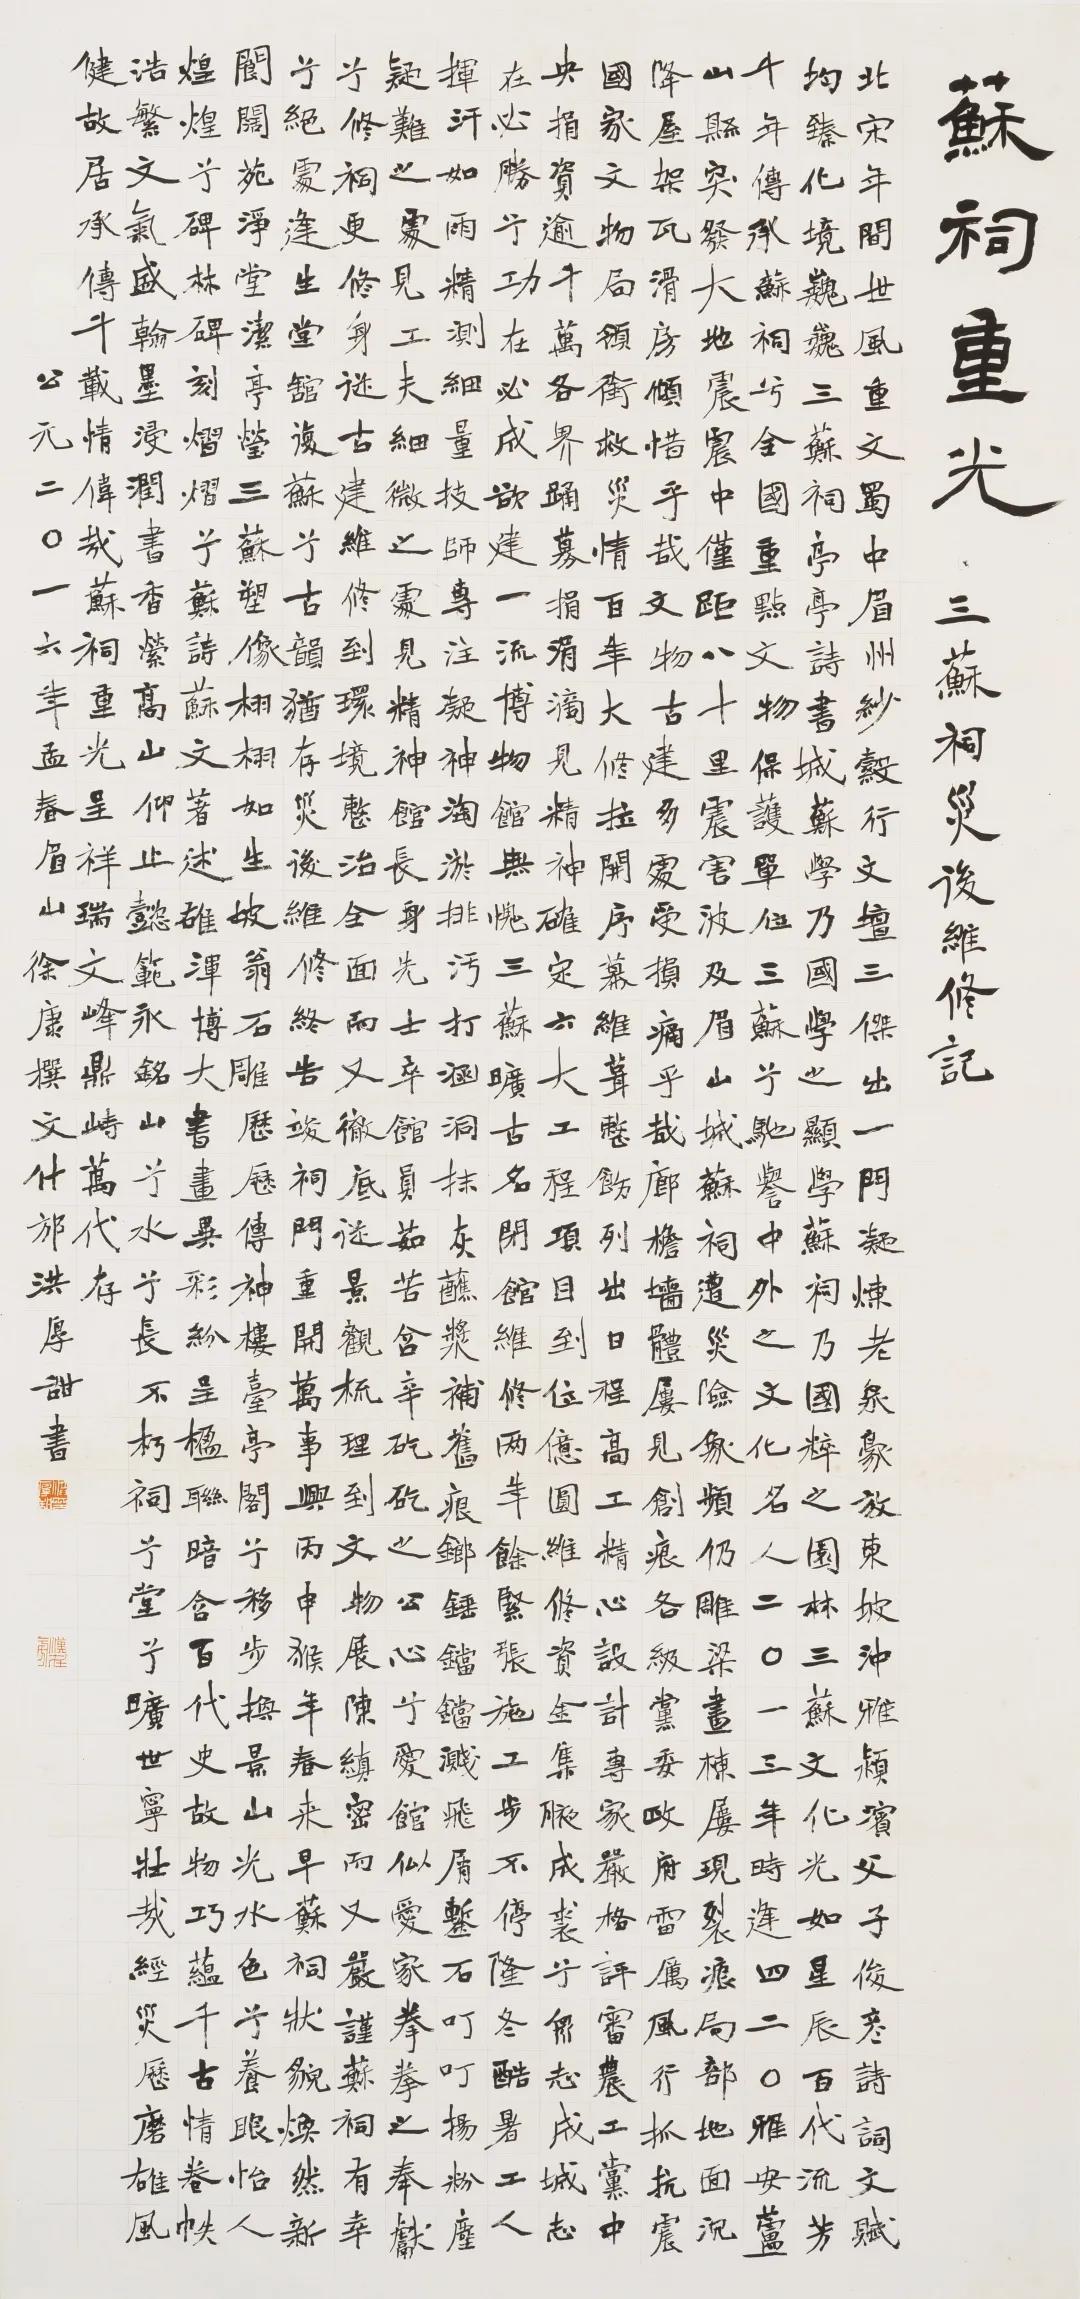 蘇祠重光
三蘇祠災後維修記
北宋年間世風重文蜀中眉州紗縠行文壇三傑出一門凝煉老泉豪放東坡沖雅潁濱父子俊彥詩詞文賦
均臻化境巍巍三蘇祠亭亭詩書城蘇學乃國學之顯學蘇祠乃國粹之園林三蘇文化光如星辰百代流芳
千年傳承蘇祠兮全國重點文物保護單位三蘇兮馳譽中外之文化名人二〇一三年時逢四二〇雅安蘆
山縣突發大地震震中僅距八十里震害波及眉山城蘇祠遭災險象頻仍雕梁畫棟屢現裂痕局部地面沉
降屋架瓦滑房傾惜乎哉文物古建多處受損痛乎哉廊檐墻體屢見創痕各級黨委政府雷厲風行抓抗震
國家文物局領銜救災情百年大修拉開序幕維葺整飭列出日程高工精心設計專家嚴格評審農工黨中
央捐資逾千萬各界踴募捐涓滴見精神確定六大工程項目到位億圓維修資金集腋成裘兮衆志成城志
在必勝兮功在必成欲建一流博物館無愧三蘇曠古名閉館維修两年餘緊張施工步不停隆冬酷暑工人
揮汗如雨精測細量技師專注凝神淘淤排污打涵洞抹灰蘸漿補舊痕鎯錘鐺鐺濺飛屑鏨石叮叮揚粉塵
疑難之處見工夫細微之處見精神館長身先士卒館員茹苦含辛矻矻之公心兮愛館似愛家拳拳之奉獻
兮修祠更修身從古建維修到環境整治全面而又徹底從景觀梳理到文物展陳縝密而又嚴謹蘇祠有幸
兮絕處逢生堂館復蘇兮古韻猶存災後維修終告竣祠門重開萬事興丙申猴年春来早蘇祠狀貌煥然新
闊苑淨堂潔亭瑩三蘇塑像栩栩如生坡翁石雕歷歷傳神樓臺亭閣兮移步換景山光水色兮養眼怡人
煌煌兮碑林碑刻熠熠兮蘇詩蘇文著述雄渾博大書畫異彩紛呈楹聯暗含百代史故物巧蘊千古情卷帙
浩繁文氣盛翰墨浸潤書香縈高山仰止懿範永銘山兮水兮長不朽祠兮堂兮曠世寧壯哉經災歷磨雄風
健故居承傳千載情偉哉蘇祠重光呈祥瑞文峰鼎峙萬代存
公元二〇一六年孟春眉山徐康撰文什邡洪厚甜書